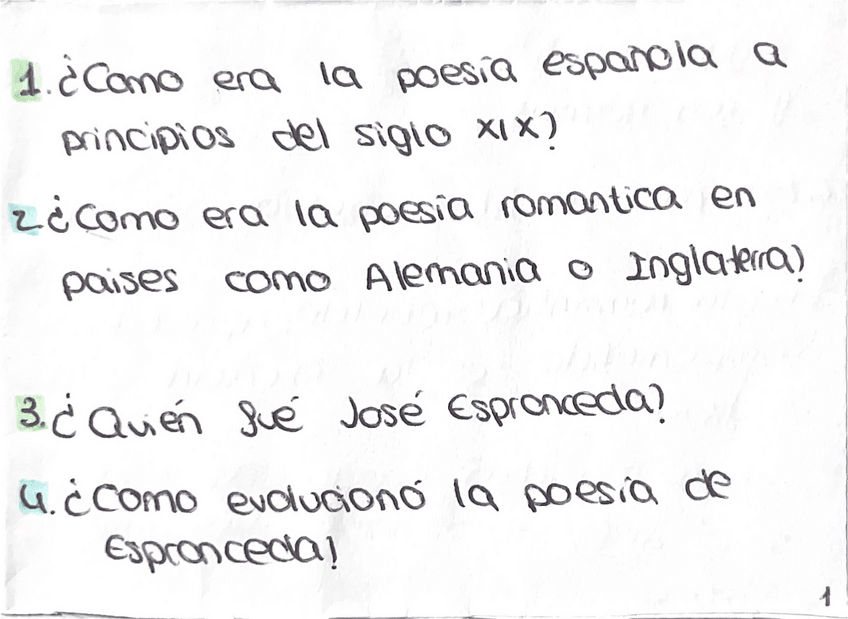 1. ¿Como era la poesía española a
principios del siglo XIX?
2 ¿Como era la poesía romantica en
paises como Alemania o Inglaterra?
3. ¿Quién fué José Espronceda?
4. ¿Como evolucionó la poesía de
Espronceda?
1